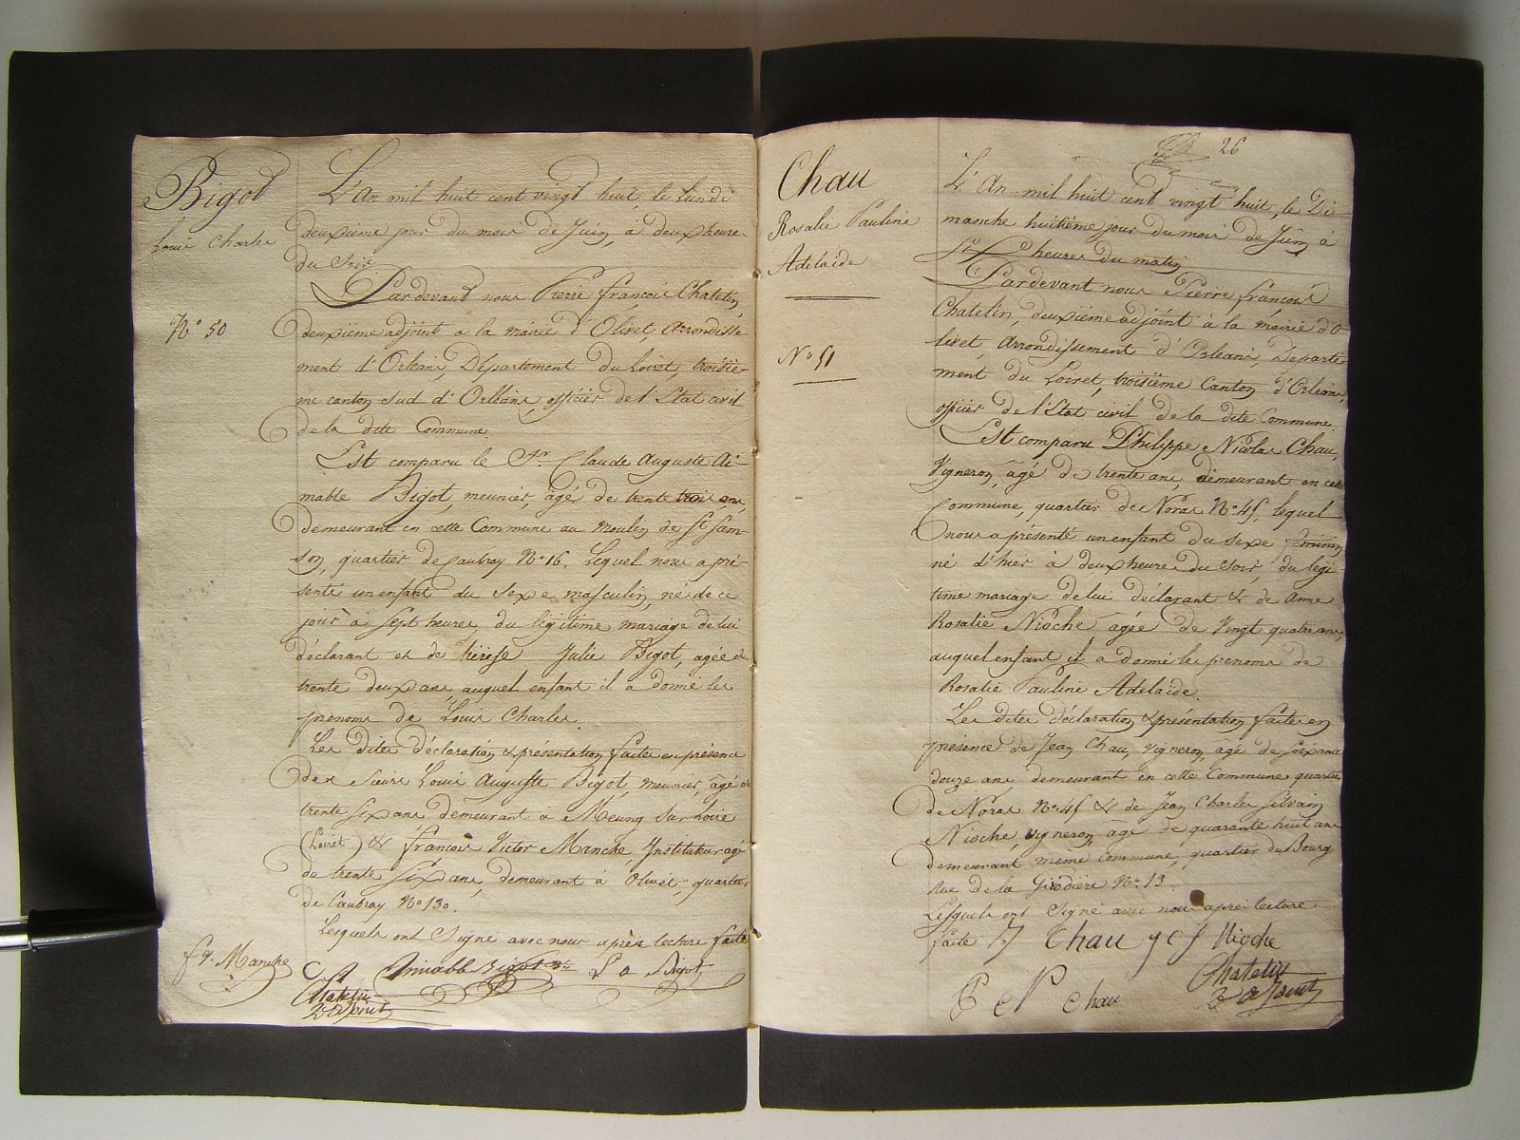 Bigot
Louis Charles
N° 50
L'An mil huit cent vingt huit, le lundi
deuxieme jour du mois de Juin, à deux heures
du Soir
Pardevant nous Pierre françois Chatelin,
deuxième adjoint a la mairie d'Olivet, arrondisse
ment d'Orléans, Département du Loiret, troisiè-
me canton sud d'Orléans, officier de l'Etat civil
de la dite Commune.
Est comparu le Sr. Claude Auguste Ai-
mable Bigot, meunier, âgé de trente trois ans,
demeurant en cette Commune au moulin de St. Sam-
son, quartier de Caubray N° 16. Lequel nous a pré-
senté un enfant du Sexe masculin, né de ce
jour à Sept heures, du légitime mariage de lui
déclarant et de thérèse Julie Bigot, agée de
trente deux ans, auquel enfant il a donné les
prenoms de Louis Charles.
Les dites déclaration & présentation faites en présence
des Sieurs Louis Auguste Bigot, meunier, âgé de
trente six ans demeurant à Meung Sur Loire
(Loiret) & françois Victor Manche, Instituteur agé
de trente six ans, demeurant à Olivet quartier
de Caubray N° 130.
Lesquels ont Signé avec nous après lecture faite
f. v. Manche
Aimable Bigot
L a Bigot
Chatelin
2e adjoint
26
Chau
Rosalie Pauline
Adelaide
N° 51
L'An mil huit cent vingt huit, le Di-
manche huitième jour du mois de Juin à
heures du matin
Pardevant nous Pierre françois
Chatelin, deuxième adjoint à la mairie d'O-
livet, Arrondissement d'Orleans, Départe
ment du Loiret, troisième Canton d'Orléans,
officier de l'Etat civil de la dite Commune.
Est comparu Philippe Nicolas Chau,
Vigneron, âgé de trente ans, demeurant en cette
Commune, quartier de Noras N° 45, lequel
nous a présenté un enfant du sexe feminin
né d'hier à deux heures du soir, du légi-
time mariage de lui déclarant & de Anne
Rosalie Nioche agée de Vingt quatre ans,
auquel enfant il a donné les prenoms de
Rosalie Pauline Adelaide.
Les dites déclaration & présentation faites en
présence de Jean Chau, vigneron, âgé de soixante
douze ans, demeurant en cette Commune quartier
de Noras N° 45 & de Jean Charles Silvain
Nioche, vigneron, âgé de quarante huit ans
demeurant même commune, quartier du Bourg
rue de la Girodière N° 13.
Lesquels ont Signé avec nous après lecture
faite J Chau J C S Nioche
P N Chau
Chatelin
2e adjoint